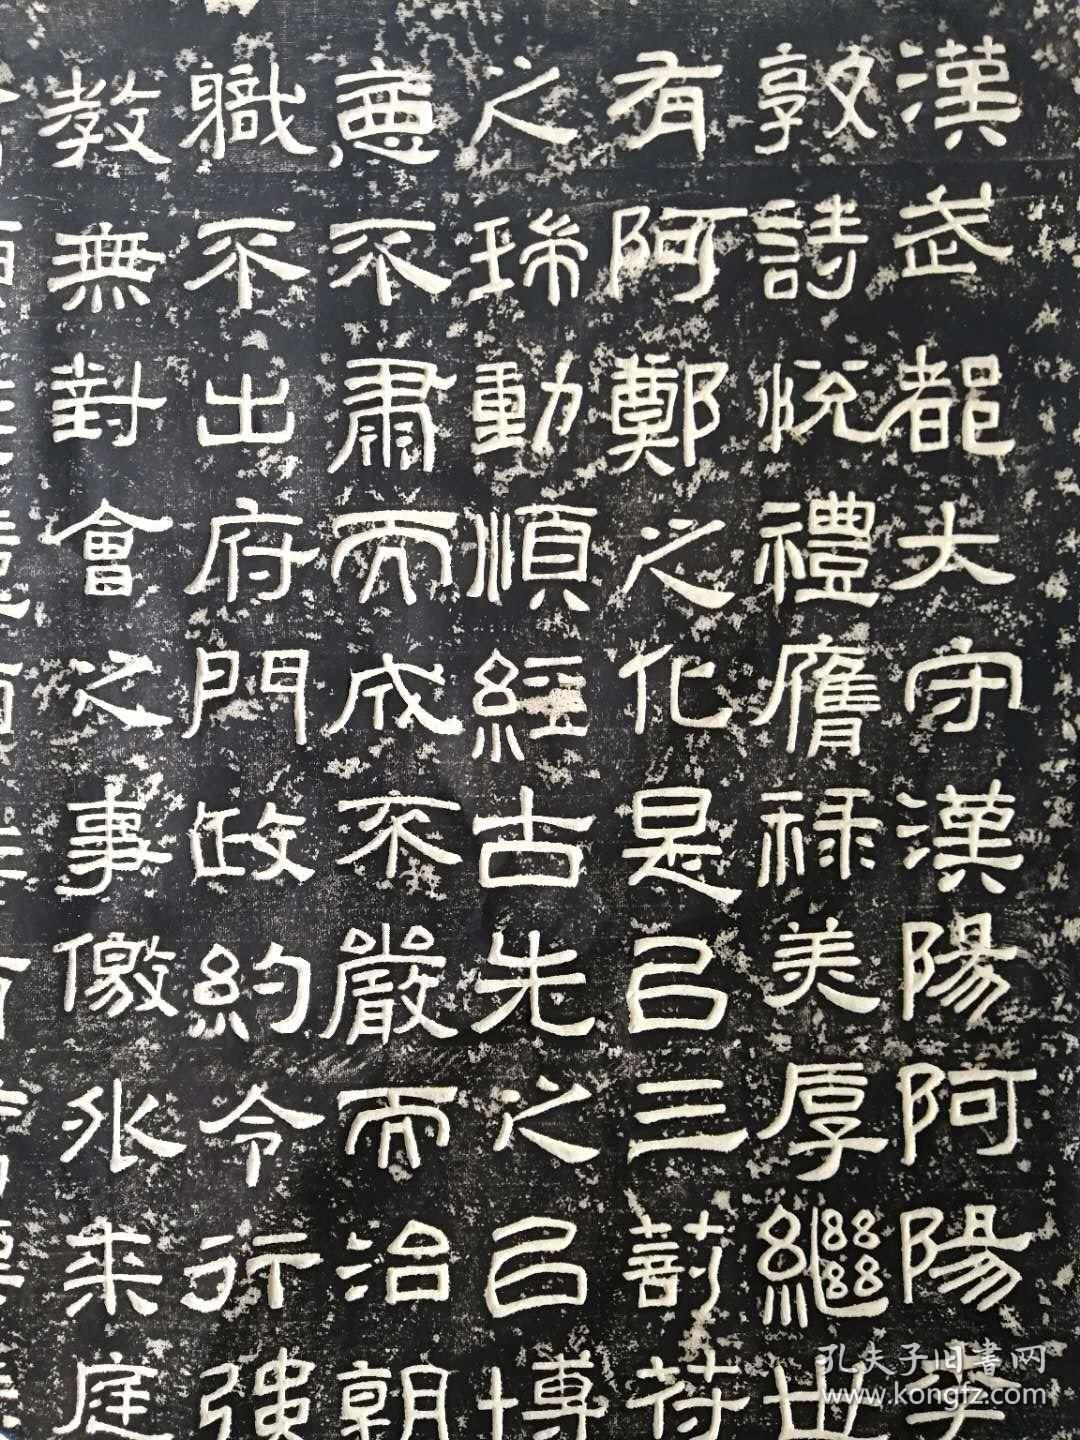 漢武都大守漢陽阿陽李
敦詩悅禮膺祿美厚繼世
有阿鄭之化是㠯三剖符
之瑞動順經古先之㠯博
惡不肅而成不嚴而治朝
職不出府門政約令行強
教無對會之事儌外來庭
孔夫子旧書网
www.kongfz.com